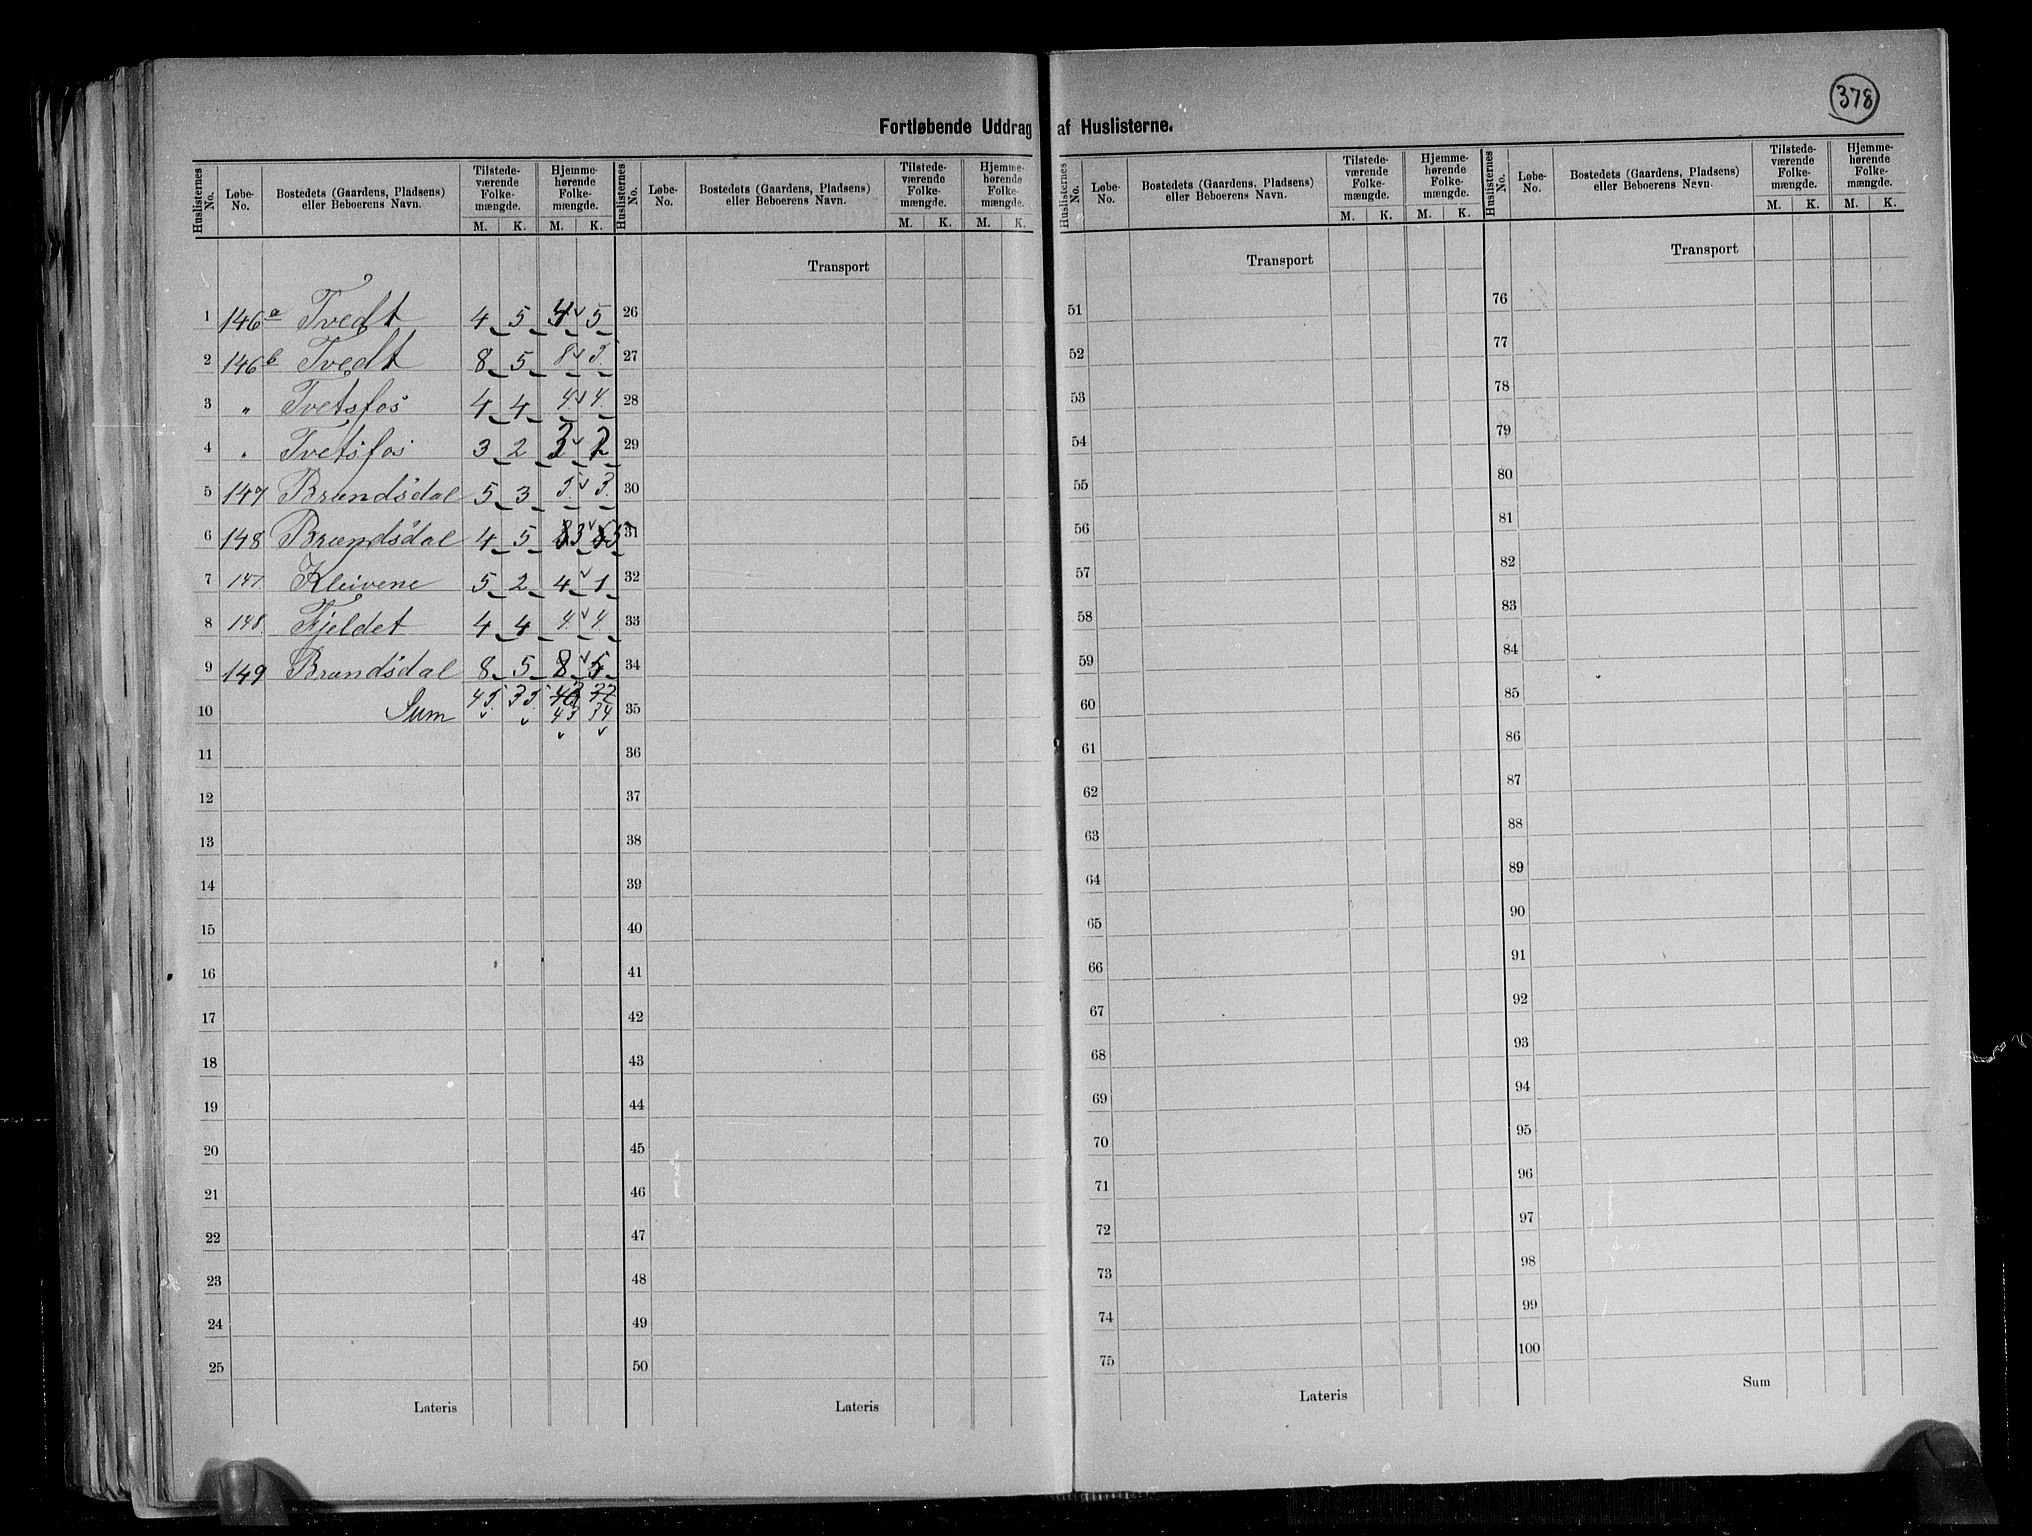 378
Fortløbende Uddrag af Huslisterne.
Huslisternes No. Løbe-No. Bostedets (Gaardens, Pladsens) eller Beboerens Navn. Tilstede-værende Folke-mængde. M. K. Hjemme-hørende Folke-mængde. M. K.
Huslisternes No. Løbe-No. Bostedets (Gaardens, Pladsens) eller Beboerens Navn. Tilstede-værende Folke-mængde. M. K. Hjemme-hørende Folke-mængde. M. K.
Huslisternes No. Løbe-No. Bostedets (Gaardens, Pladsens) eller Beboerens Navn. Tilstede-værende Folke-mængde. M. K. Hjemme-hørende Folke-mængde. M. K.
Huslisternes No. Løbe-No. Bostedets (Gaardens, Pladsens) eller Beboerens Navn. Tilstede-værende Folke-mængde. M. K. Hjemme-hørende Folke-mængde. M. K.
Transport Transport Transport
1 146a Tvedt 4 5 4 5 26 51 76
2 146b Tvedt 8 5 8 5 27 52 77
3 " Tvetsfos 4 4 4 4 28 53 78
4 " Tvetsfos 3 2 3 29 54 79
5 147 Brændsdal 5 3 5 3 30 55 80
6 148 Brændsdal 4 5 3 5 31 56 81
7 147 Kleivene 5 2 4 1 32 57 82
8 148 Fjeldet 4 4 4 4 33 58 83
9 149 Brændsdal 8 5 8 5 34 59 84
10 Sum 45 35 43 34 35 60 85
11 36 61 86
12 37 62 87
13 38 63 88
14 39 64 89
15 40 65 90
16 41 66 91
17 42 67 92
18 43 68 93
19 44 69 94
20 45 70 95
21 46 71 96
22 47 72 97
23 48 73 98
24 49 74 99
25 50 75 100
Lateris Lateris Lateris Sum